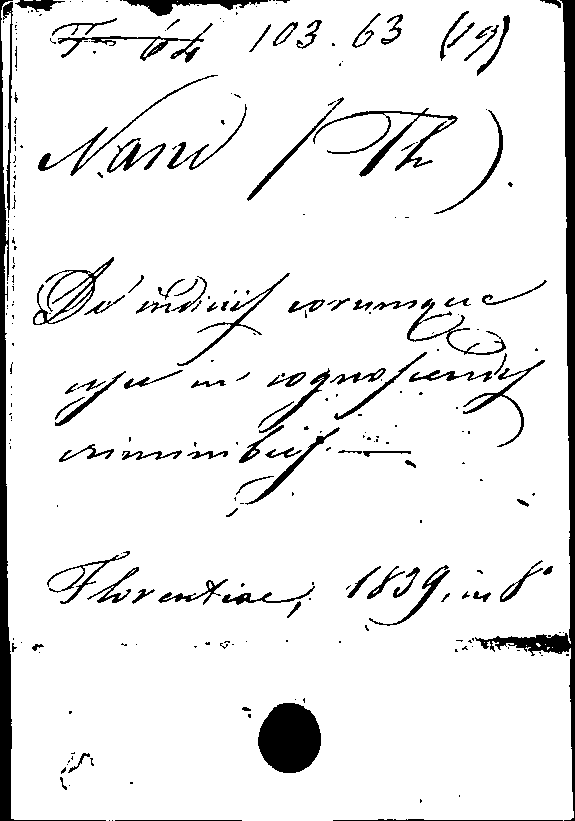 F. 64 103.63 (19)
Nani (Th).
De indiciis eorumque
usu in cognoscendis
criminibus. —
Florentiae, 1839, in 8°